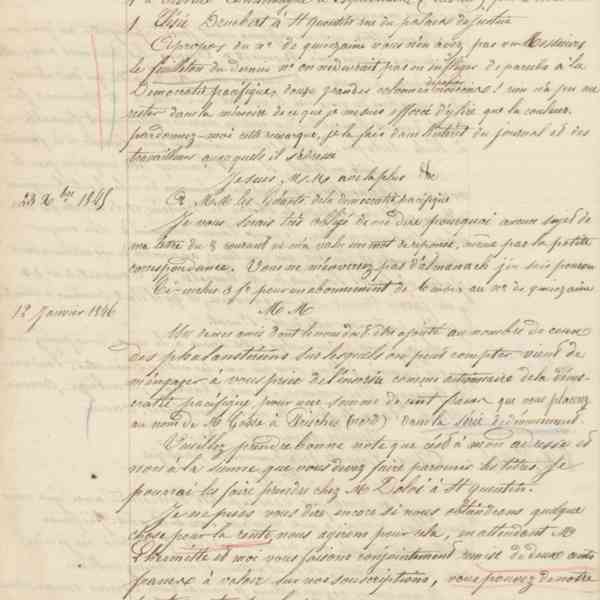 1 Elsie Druckert à St Quentin rue du palais de justice
Apropos du No de quinzaine vous n'en avez pas eu Messieurs
le feuilleton du dernier No on ne devrait pas en infliger de pareils à la
Démocratie pacifique, douze grandes colonnes rien n'a pu en
rester dans la mémoire de ce que je me suis efforcé d'y lire que la couleur.
pardonnez-moi cette remarque, je la fais dans l'intérêt du journal et des
travailleurs auxquels il s'adresse
Je suis, M. Rs avec la plus &c
23 Xbre 1845 A M.M. les Gérants de la démocratie pacifique
Je vous serais très obligé de me dire pourquoi aucun sujet de
ma lettre du 8 courant ne m'a valu un mot de réponse, même par la petite
correspondance. Vous ne m'enverrez pas d'almanach j'en suis pourvu
Ci-inclus 3 f pour un abonnement de 6 mois au No de quinzaine
12 Janvier 1846 M M
Un de mes amis dont le nom doit être ajouté au nombre de ceux
des phalanstériens sur lesquels on peut compter vient de
m'engager à vous prier de l'inscrire comme actionnaire de la démo-
cratie pacifique pour une somme de cent francs que vous placerez
au nom de Mr (nord) dans la série de dévouement.
Veuillez prendre bonne note que c'est à mon adresse et
non à la sienne que vous devez faire parvenir les titres. Je
pourrai les faire prendre chez Mr Dolos à St Quentin.
Je ne puis vous dire encore si nous obtiendrons quelque
chose pour la rente nous agirons pour cela, en attendant Mr
Lhermitte et moi vous faisons conjointement remise de deux cents
francs à valoir sur nos souscriptions, vous pouvez de notre